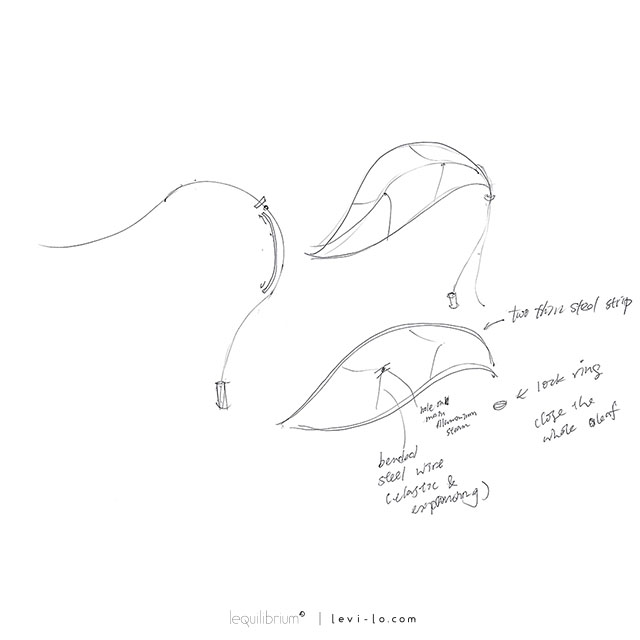 two thin steel strip
lock ring
close the
whole leaf
hole on
main
Alumunium
steam
bended
steel wire
(elastic &
expanding)
lequilibrium© | levi-lo.com